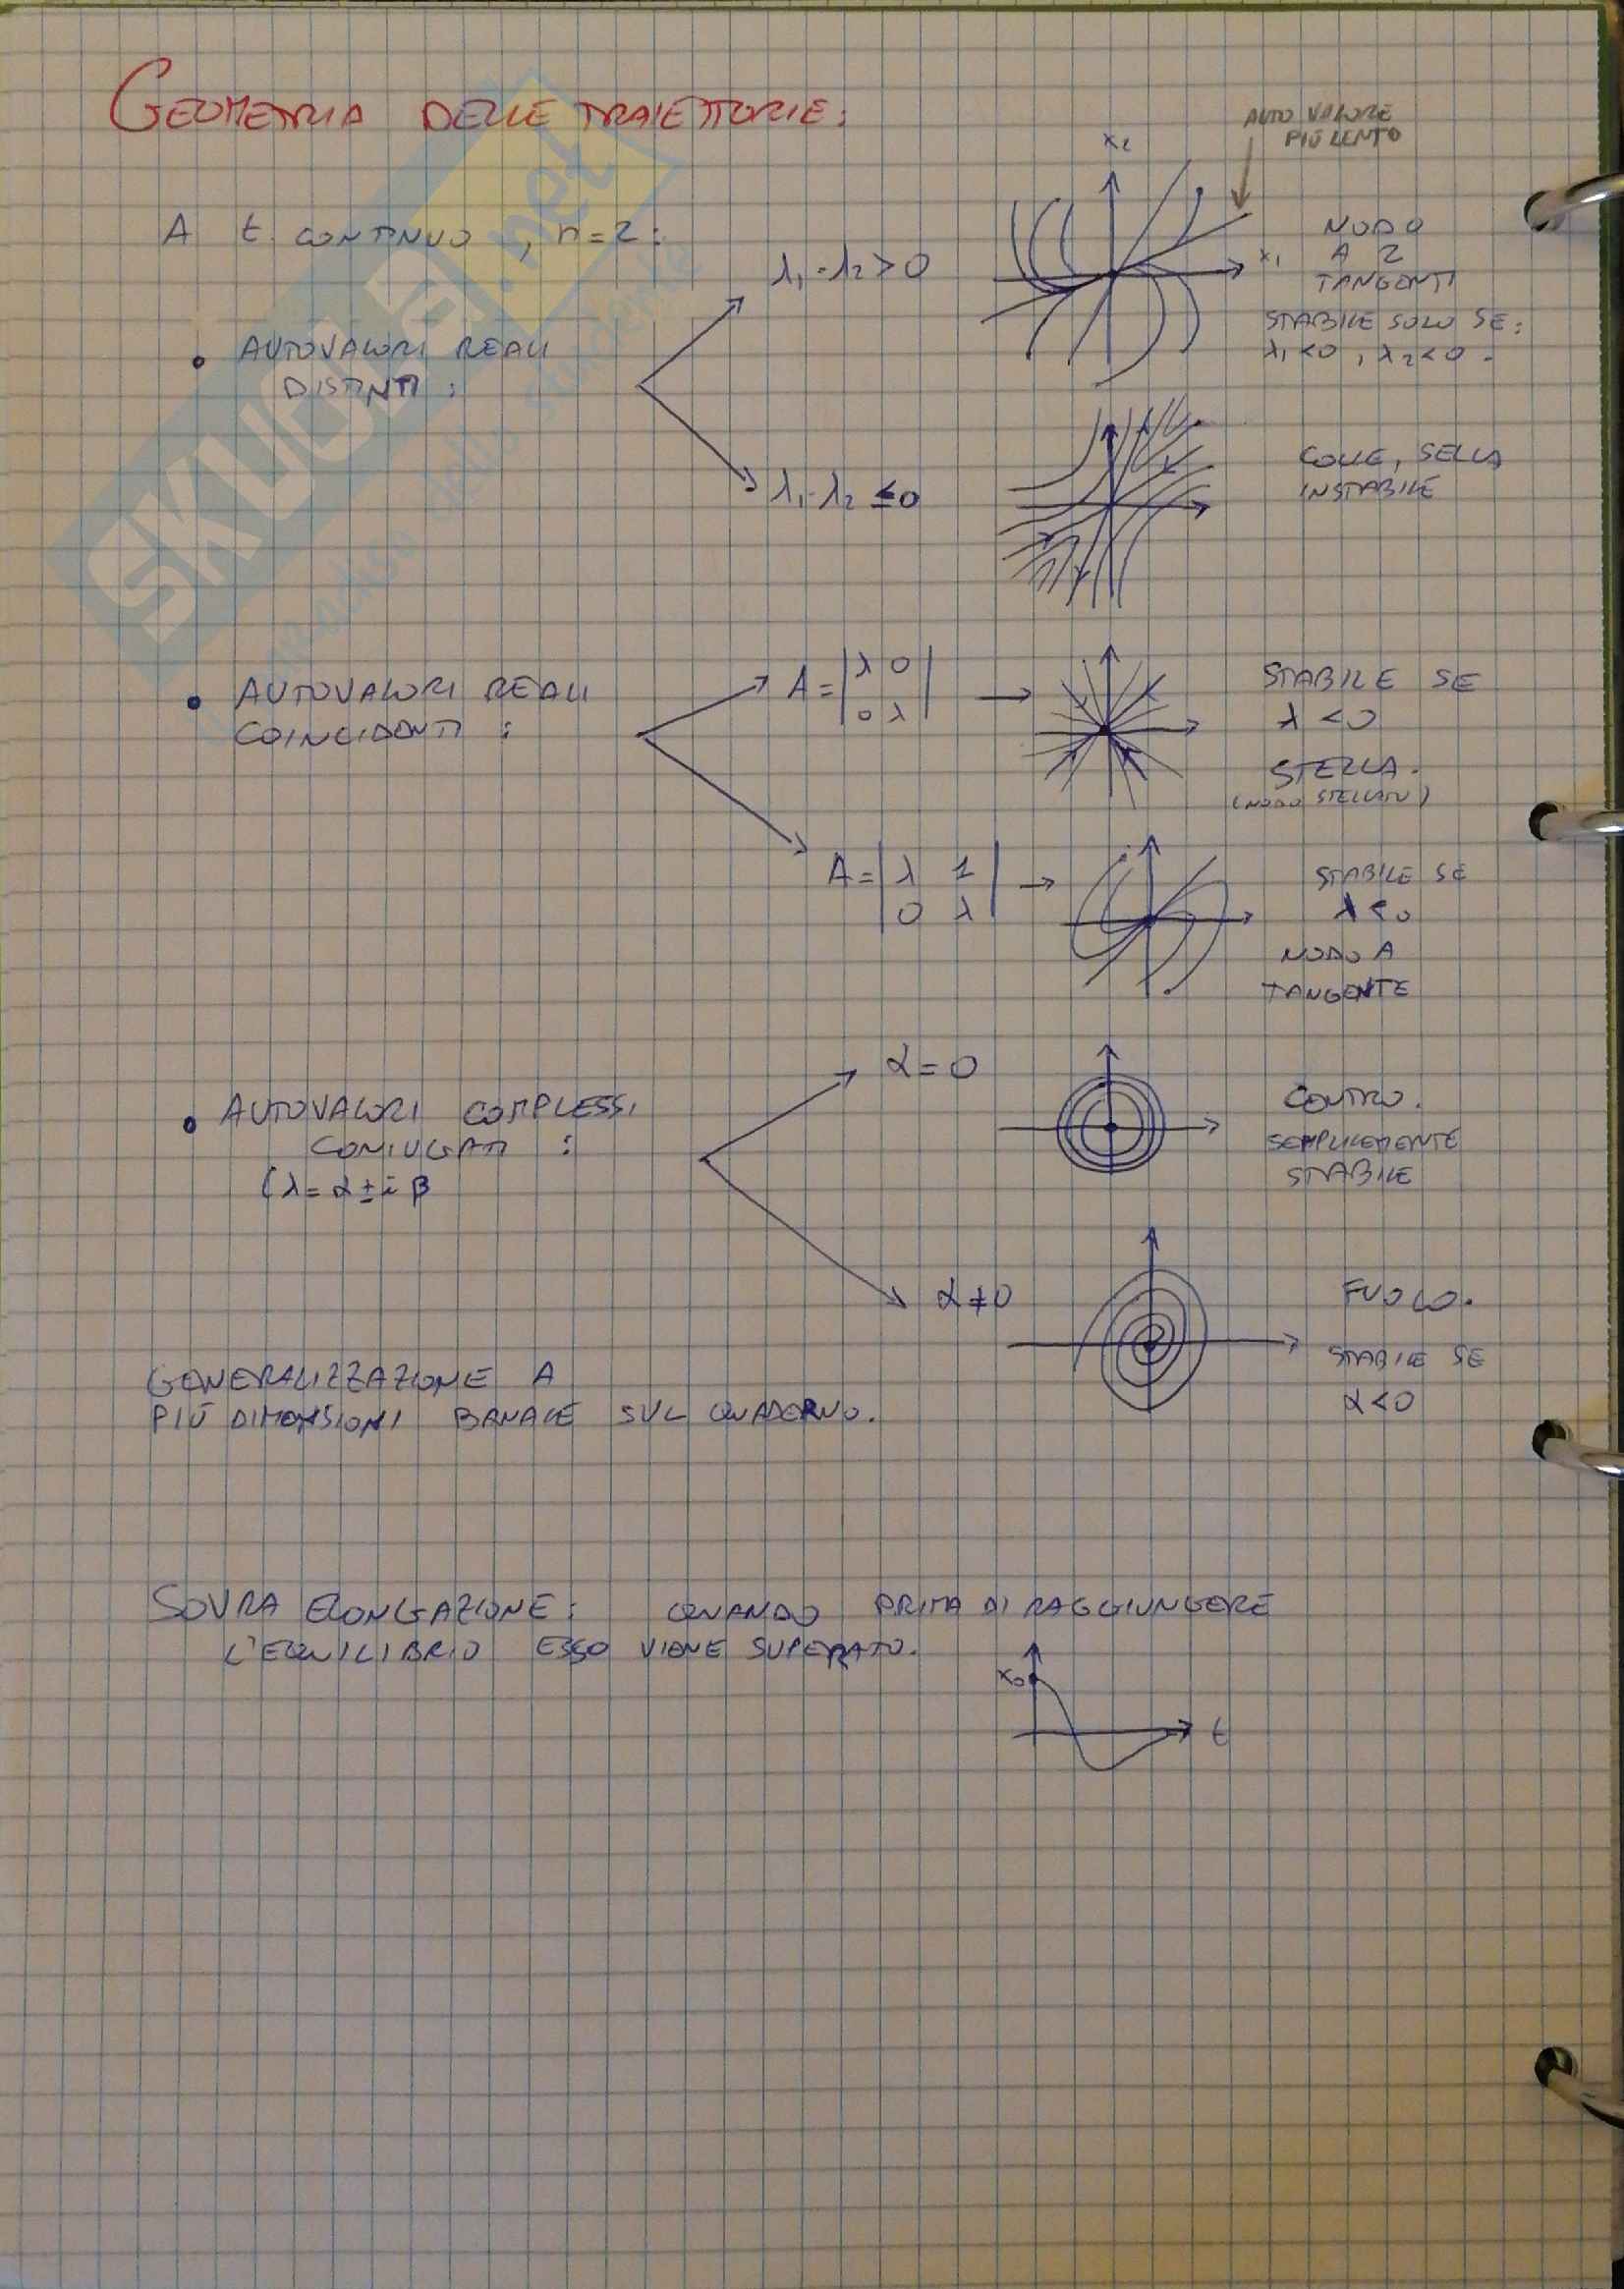 GEOMETRIA DELLE TRAIETTORIE:
A t CONTINUO, n=2:
• AUTOVALORI REALI
DISTINTI:
λ₁·λ₂>0
x₂
x₁
AUTOVALORE
PIÙ LENTO
NODO
A 2
TANGENTI
STABILE SOLO SE:
λ₁<0, λ₂<0.
λ₁·λ₂≤0
COLLE, SELLA
INSTABILE
• AUTOVALORI REALI
COINCIDENTI:
A = |λ 0|
|0 λ|
STABILE SE
λ<0
STELLA.
(NODO STELLATO)
A = |λ 1|
|0 λ|
STABILE SE
λ<0
NODO A
TANGENTE
• AUTOVALORI COMPLESSI
CONIUGATI:
(λ=α±iβ
α=0
CENTRO.
SEMPLICEMENTE
STABILE
α≠0
FUOCO.
STABILE SE
α<0
GENERALIZZAZIONE A
PIÙ DIMENSIONI BANALE SUL QUADERNO.
SOVRA ELONGAZIONE: QUANDO PRIMA DI RAGGIUNGERE
L'EQUILIBRIO ESSO VIENE SUPERATO.
x₀
t
SKUOLA.net